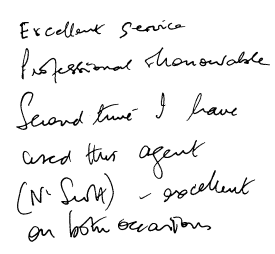 Excellent service
Professional & honourable
Second time I have
used this agent
(N' ) - excellent
on both occasions